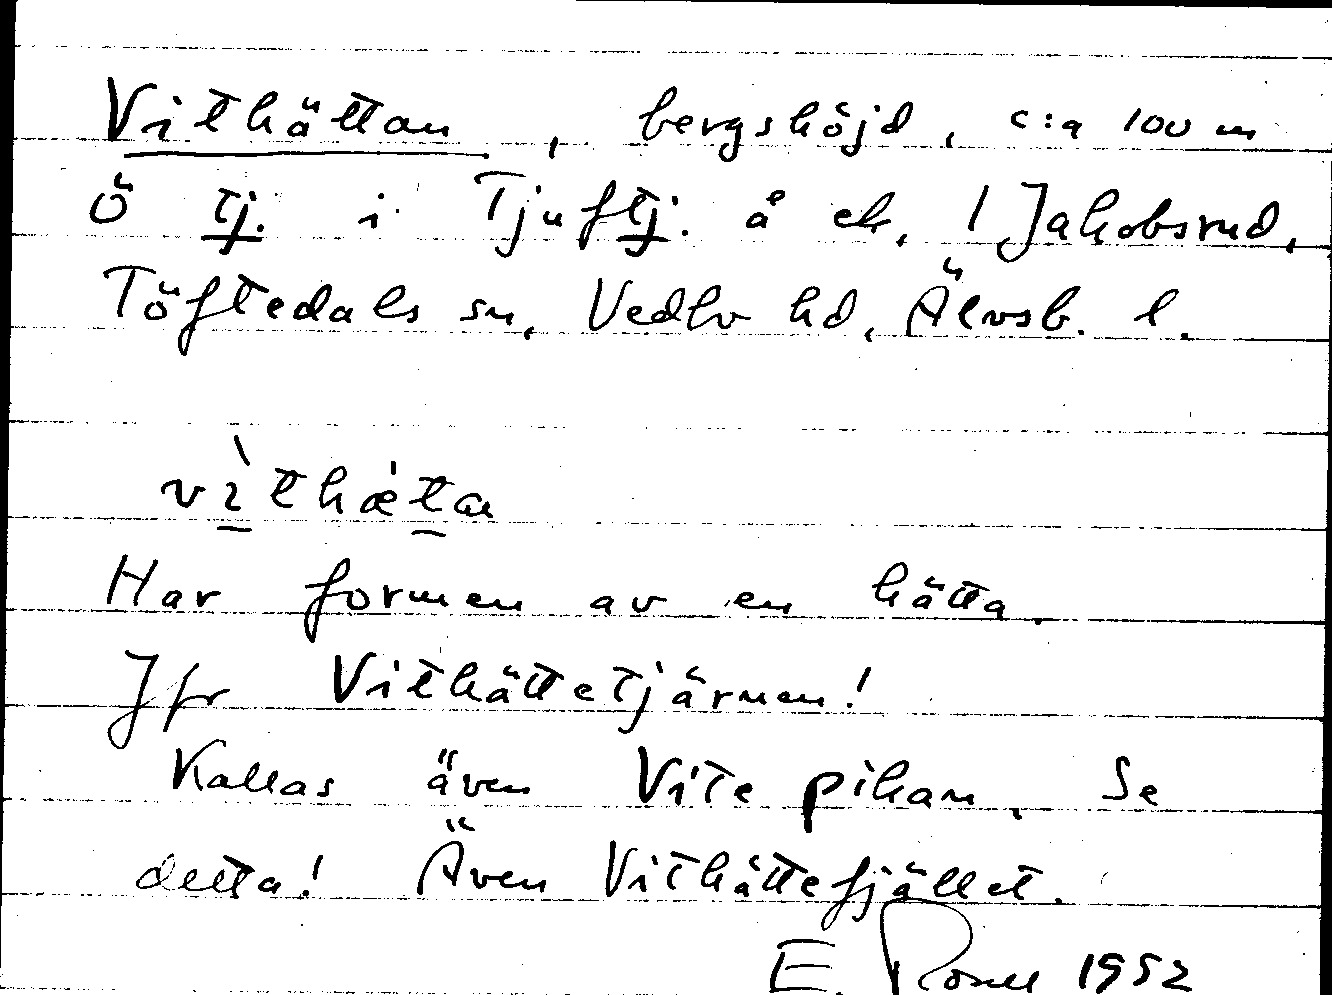 Vithättan, bergshöjd, c:a 100 m
Ö tj. i Tjuftj. å ek. 1 Jakobsrud,
Töftedals sn, Vedbo hd, Älvsb. l.
vìthæ̀tan
Har formen av en hätta.
Jfr Vithättetjärnen!
Kallas även Vite pikan. Se
detta! Även Vithättefjället.
E. 1952